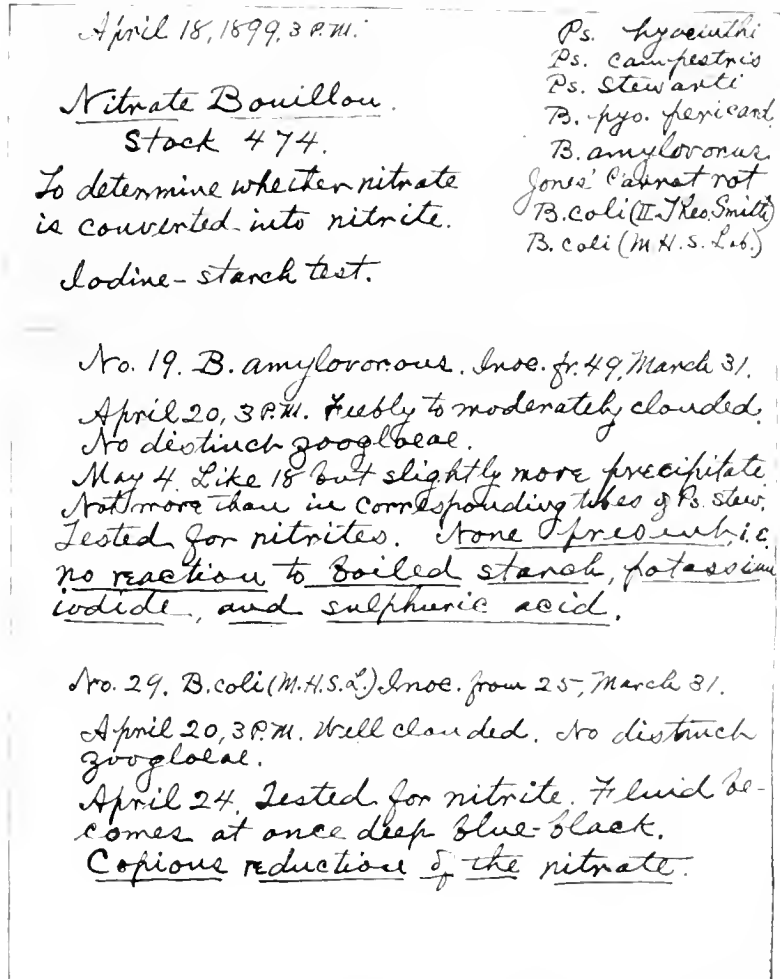 April 18, 1899, 3 P.M.
Nitrate Bouillon.
Stock 474.
To determine whether nitrate
is converted into nitrite.
Iodine-starch test.
Ps. hyacinthi
Ps. campestris
Ps. Stewarti
B. pyo. pericard.
B. amylovorus
Jones' Carrot rot
B. coli (II Theo. Smith)
B. coli (M.H.S. Lab.)
No. 19. B. amylovorous. Inoc. fr. 49, March 31.
April 20, 3 P.M. Feebly to moderately clouded.
No distinct zoogloeae.
May 4. Like 18 but slightly more precipitate
Not more than in corresponding tubes of Ps. stew.
Tested for nitrites. None present, i.e.
no reaction to boiled starch, potassium
iodide, and sulphuric acid.
No. 29. B. coli (M.H.S.L.) Inoc. from 25, March 31.
April 20, 3 P.M. Well clouded. No distinct
zoogloeae.
April 24. Tested for nitrite. Fluid be-
comes at once deep blue-black.
Copious reduction of the nitrate.